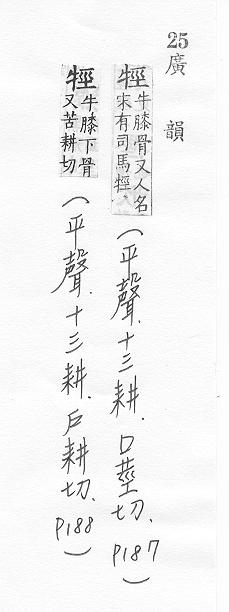 25
廣韻
牼牛膝骨又人名
宋有司馬牼
(平聲.十三耕.口莖切.P187)
牼牛膝下骨
又苦耕切
(平聲.十三耕.戶耕切.P188)